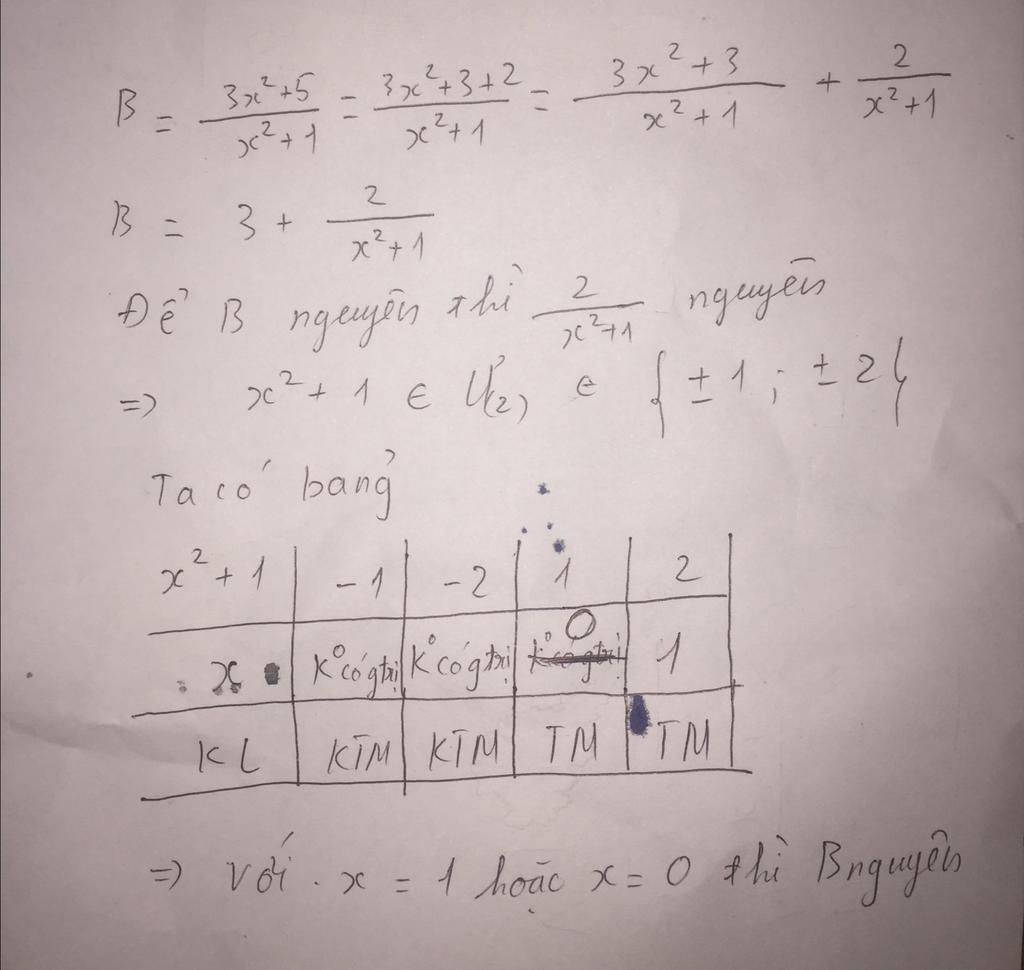 B = (3x²+5)/(x²+1) = (3x²+3+2)/(x²+1) = (3x²+3)/(x²+1) + 2/(x²+1)
B = 3 + 2/(x²+1)
Để B nguyên thì 2/(x²+1) nguyên
=> x²+1 ∈ Ư(2) ∈ {±1; ±2}
Ta có bảng
x²+1 | -1 | -2 | 1 | 2
x | K° có gtrị | K° có gtrị | 0 | 1
KL | KTM | KTM | TM | TM
=> Với x = 1 hoặc x = 0 thì B nguyên